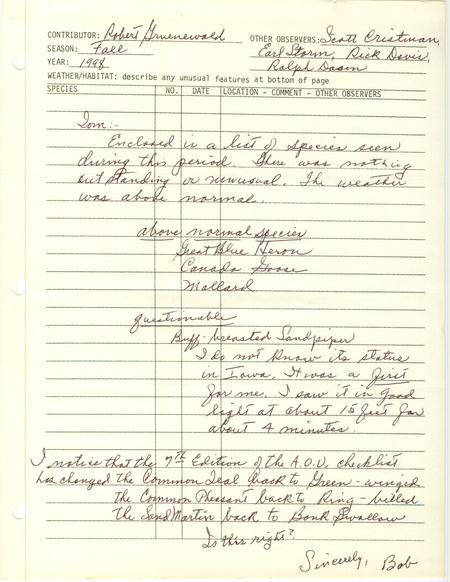 CONTRIBUTOR: Robert Gruenewald OTHER OBSERVERS: Scott Cristman,
SEASON: Fall Earl Storm, Rick Davis,
YEAR: 1998 Ralph
WEATHER/HABITAT: describe any unusual features at bottom of page
SPECIES NO. DATE LOCATION - COMMENT - OTHER OBSERVERS
Tom:-
Enclosed is a list of species seen
during this period. There was nothing
outstanding or unusual. The weather
was above normal.
above normal species
Great Blue Heron
Canada Goose
Mallard
questionable
Buff-breasted Sandpiper
I do not know its status
in Iowa. It was a first
for me. I saw it in good
light at about 15 feet for
about 4 minutes.
I notice that the 7th Edition of the A.O.U. checklist
has changed the Common Teal back to Green-winged
the Common Pheasant back to Ring-billed
the Sand Martin back to Bank Swallow
Is this right?
Sincerely, Bob